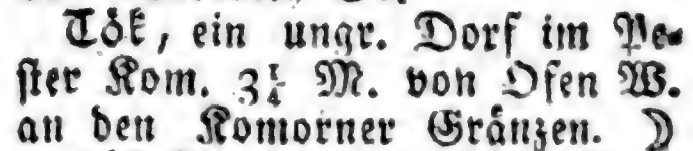 Tök, ein ungr. Dorf im Pe-
ster Kom. 3¼ M. von Ofen W.
an den Komorner Gränzen. ☽